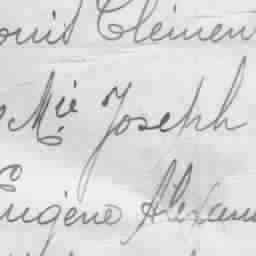 ouis Clémen
Mie Joseph
Eugène Alexan